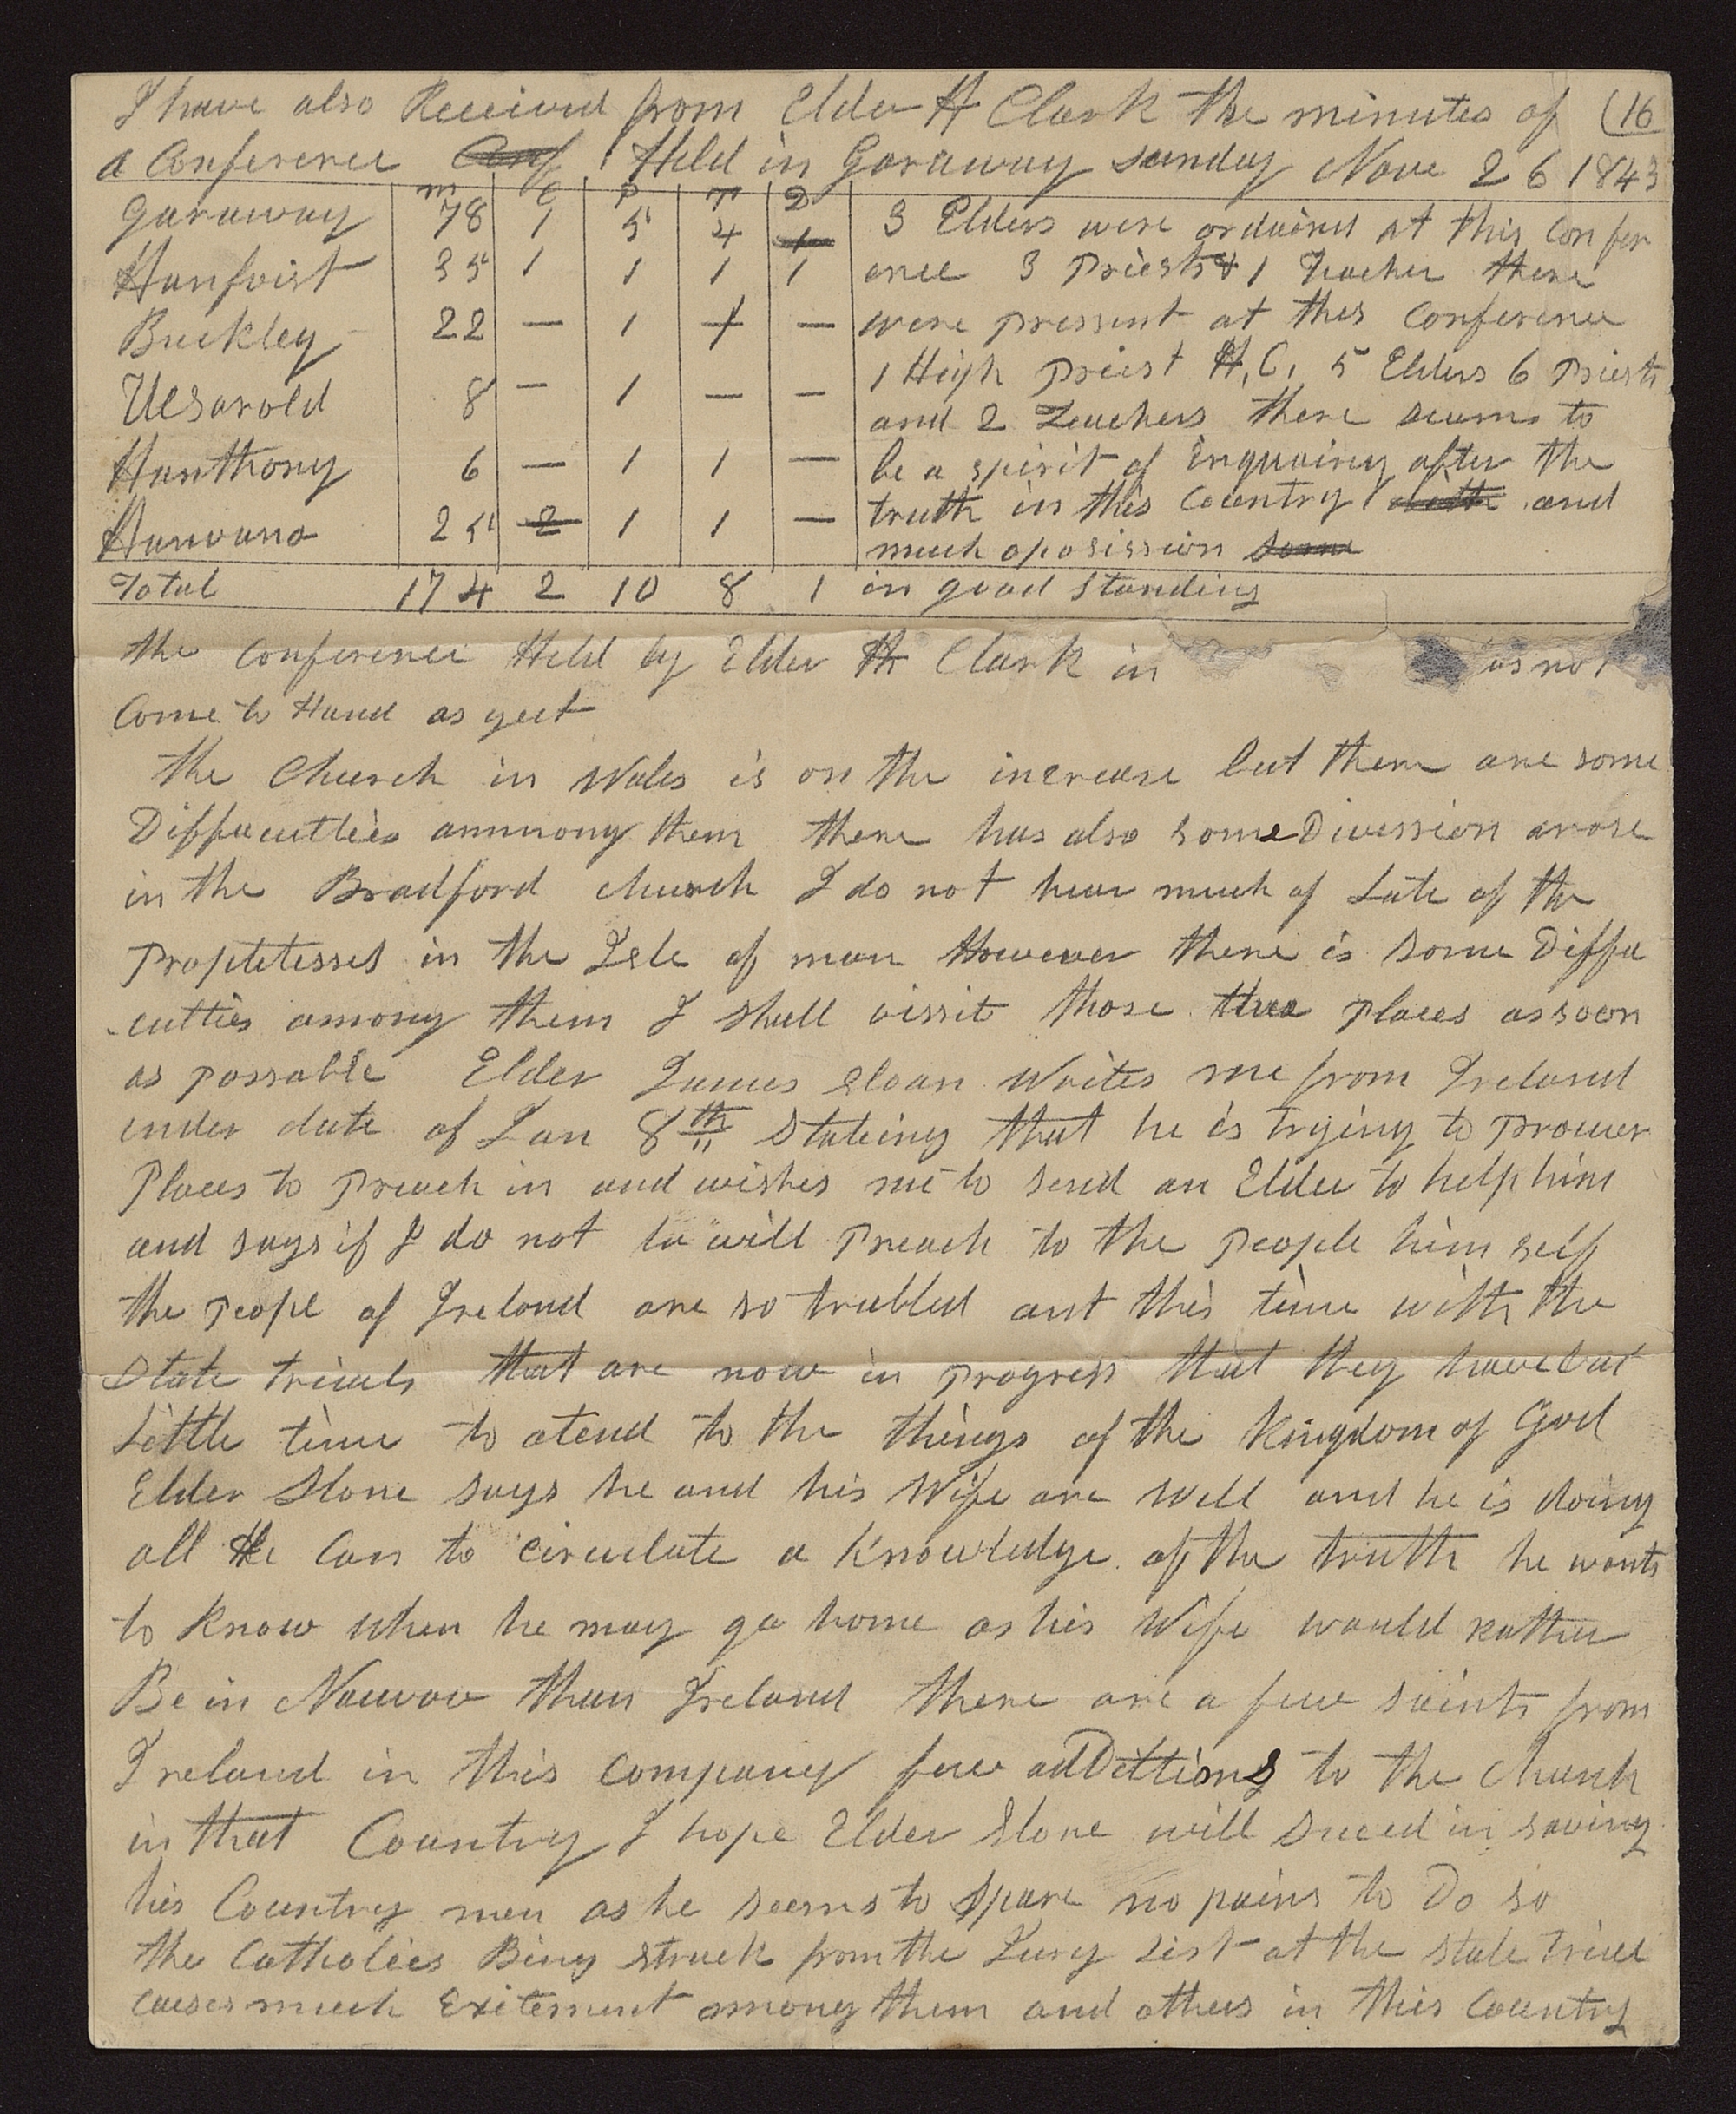 I have also Received from Elder H Clark the minutes of (16
a Conference Conf. Held in Garaway sunday Nove 26 1843
m e P T D
Garaway 78 1 5 4 1 3 Elders were ordaind at this Confer
Hanfoist 35 1 1 1 1 ence 3 Priests & 1 Teacher there
Buckley 22 — 1 1 — were pressent at this Conference
1 High Priest H, C, 5 Elders 6 Priests
Uesarold 8 — 1 — — and 2 Teachers there seams to
Hanthony 6 — 1 1 — be a spirit of Enquairy after the
truth in this Country and
Hanvano 25 2 1 1 — much oposission some
Total 174 2 10 8 1 in good Standing
the Conference Held by Elder H Clark in as not
Come to Hand as yeet
the Church in Wales is on the increase but there are some
Diffucutlies ammong them there has also some Divission arose
in the Bradford church I do not hear much of Late of the
Proptitesses in the Isle of man However there is some Diffu
-cutties among them I shall vissit those three Places as soon
as possable Elder James Sloan Writes me from Ireland
under date of Jan 8th Stateing that he is trying to Procuer
Places to Preach in and wishes me to send an Elder to help him
and says if I do not he will Preach to the People him self
the Peopl of Ireland are so trubled aut this time with the
State trieals that are now in progress that they have but
Little time to atend to the things of the Kingdom of God
Elder Slone says he and his Wife are Well and he is doing
all He Can to circulate a Knowledge of the truth he wants
to Know when he may go home as his Wife would rather
Be in Nauvoo than Ireland there are a few saints from
Ireland in this Company few adDittions to the Church
in that Country I hope Elder Slone will suceed in saving
his Country men as he seems to Spare no pains to Do so
the Catholics Bing struck from the Jury List at the state trial
causes much Exitement among them and others in this Country